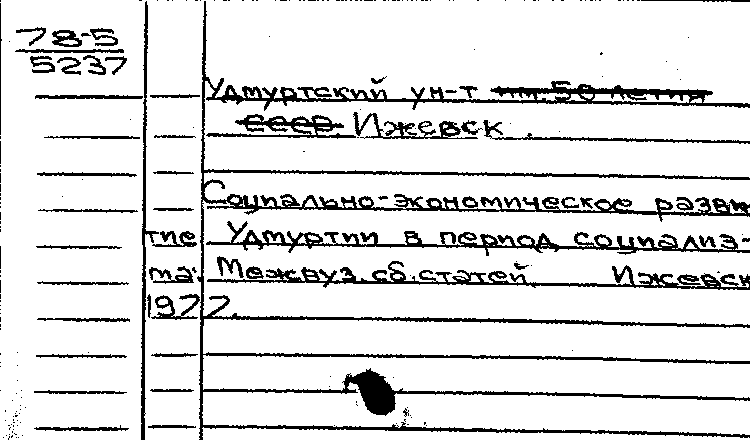 78-5
5237
Удмуртский ун-т им. 50-летия
СССР. Ижевск.
Социально-экономическое разви
тие Удмуртии в период социализ-
ма: Межвуз. сб. статей. Ижевск
1977.